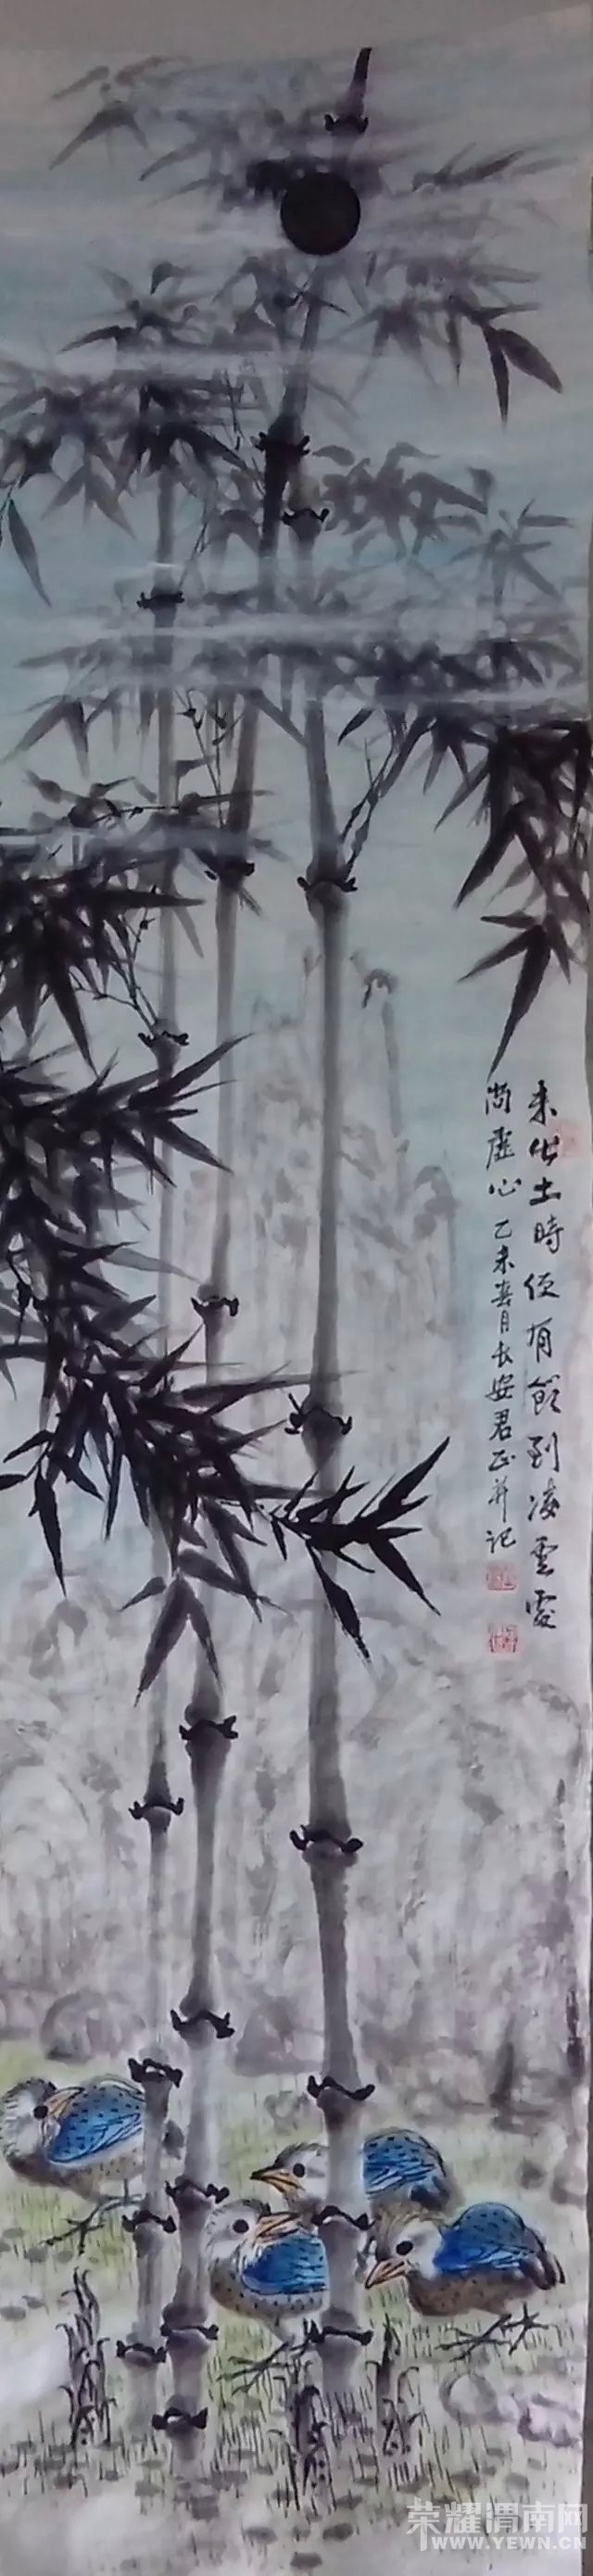 未出土時便有節到凌雲處
尚虛心乙未春月長安君正并记
荣耀渭南网
WWW.YEWN.CN